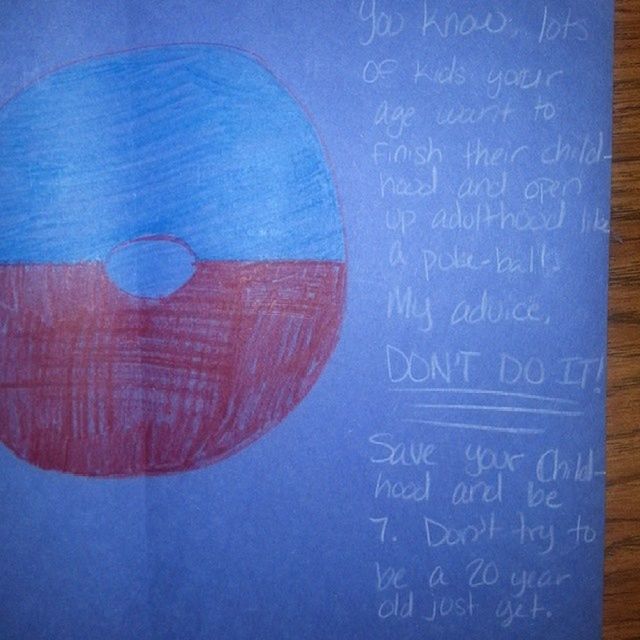 You know, lots
of kids your
age want to
finish their child-
hood and open
up adulthood like
a poke-ball.
My advice,
DON'T DO IT!
Save your Child-
hood and be
7. Don't try to
be a 20 year
old just yet.